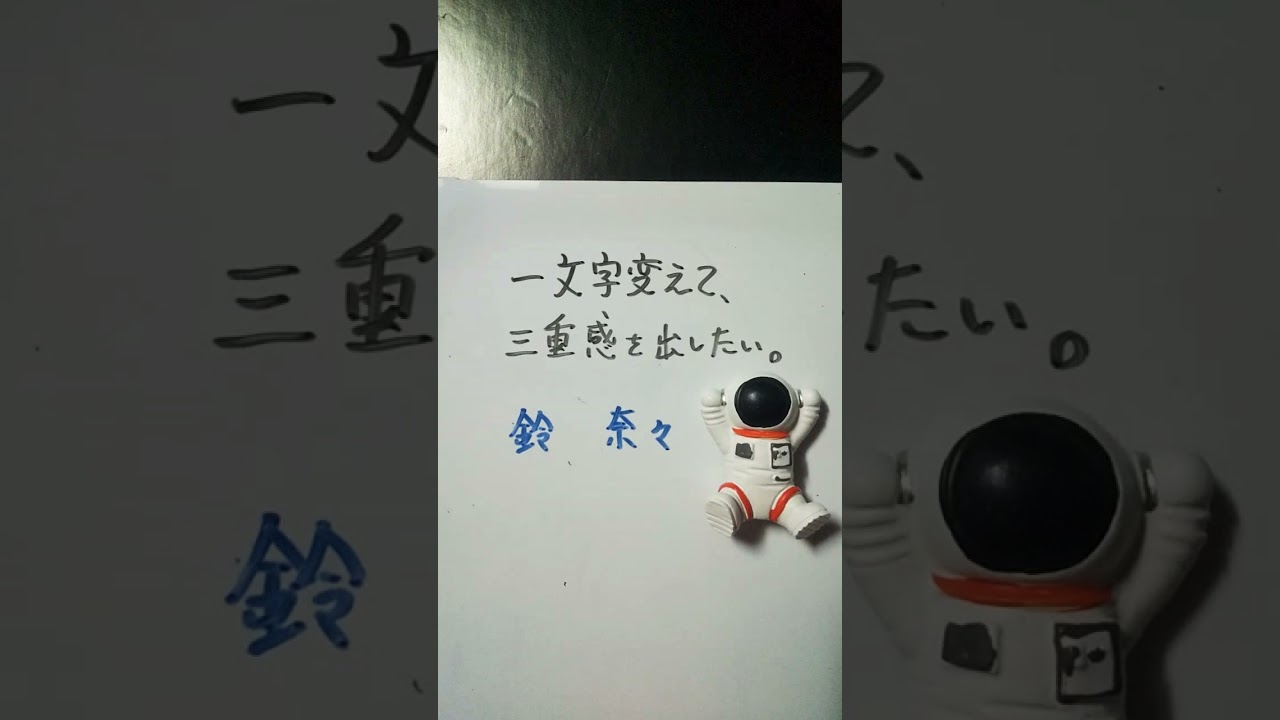 一文字変えて、
三重感を出したい。
鈴　奈々